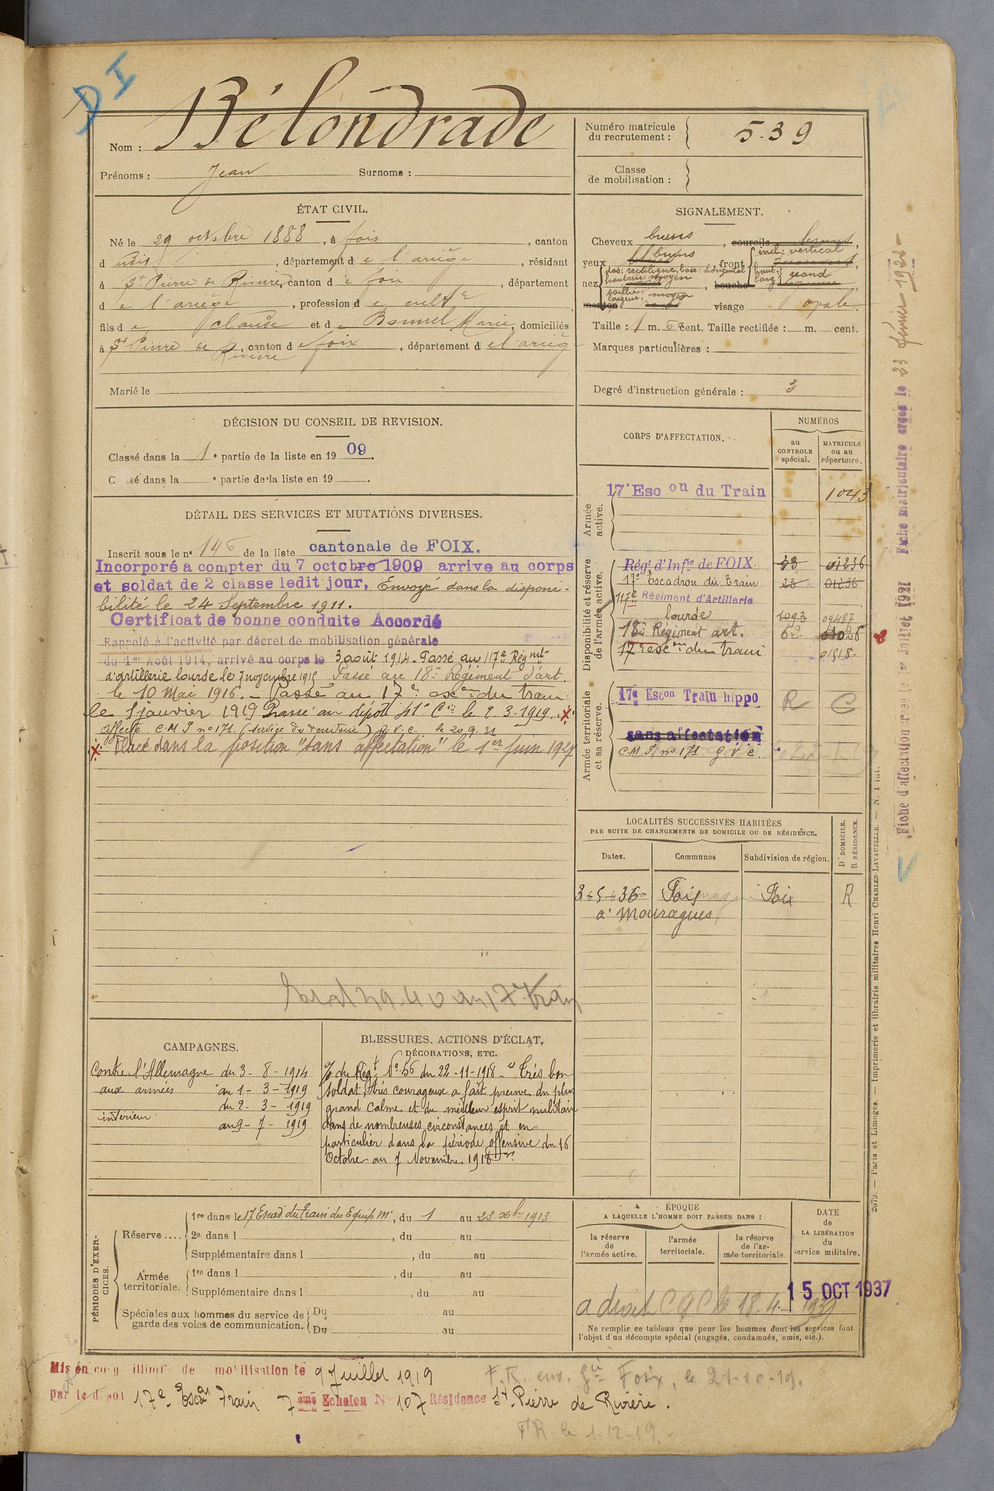 D I
Nom : Bélondrade
Prénoms : Jean Surnoms :
Numéro matricule
du recrutement : 539
Classe
de mobilisation :
ÉTAT CIVIL.
Né le 29 octobre 1888, à foix, canton
d udit, département de l'ariège, résidant
à St Pierre de Rivière, canton de foix, département
de l'ariège, profession de cultr
fils de Claude et de Bonnel Marie, domiciliés
à St Pierre de Rivière, canton de foix, département de l'arièg
Marié le
SIGNALEMENT.
Cheveux bruns, sourcils
yeux bruns, front incl. vertical
haut. larg. grand
nez dos: rectiligne, base: horizontal
hauteur: moyen, bouche
saillie: largeur: moyen
menton visage ovale
Taille : 1 m. 6 cent. Taille rectifiée : m. cent.
Marques particulières :
Degré d'instruction générale : 3
DÉCISION DU CONSEIL DE REVISION.
Classé dans la 1e partie de la liste en 1909.
C sé dans la e partie de la liste en 19
DÉTAIL DES SERVICES ET MUTATIONS DIVERSES.
Inscrit sous le no 146 de la liste cantonale de FOIX.
Incorporé a compter du 7 octobre 1909 arrive au corps
et soldat de 2 classe ledit jour, Envoyé dans la disponi-
bilité le 24 Septembre 1911.
Certificat de bonne conduite Accordé
Rappelé à l'activité par décret de mobilisation générale
du 1er Août 1914, arrivé au corps le 3 août 1914. Passé au 117e Régmt
d'artillerie lourde le 7 novembre 1915 Passé au 18e Régiment d'art.
le 10 Mai 1916. Passé au 17e escon du train
le 1 janvier 1919 Passé au dépôt le 2-3-1919.
affecté C M J no 171 (service du territoire) g.v.c. le 20.9.31
Placé dans la position "sans affectation" le 1er juin 1927
CORPS D'AFFECTATION.
NUMÉROS
au
CONTROLE
spécial.
MATRICULE
ou au
répertoire.
Armée
active.
17e Escon du Train 1043
Disponibilité et réserve
de l'armée active.
Rég. d'Infie de FOIX 53 01236
17e Escadron du Train 23 01236
117e Régiment d'Artillerie
lourde 1093 09487
18e Régiment art. 62
17e escon du train 01518
Armée territoriale
et sa réserve.
17e Escon Train hippo R C
sans affectation
C M J no 171 g.v.c.
LOCALITÉS SUCCESSIVES HABITÉES
PAR SUITE DE CHANGEMENTS DE DOMICILE OU DE RÉSIDENCE.
Dates. Communes Subdivision de région. D DOMICILE. R RÉSIDENCE.
3-5-36 Foix Foix R
a' Mouragues
CAMPAGNES.
Contre l'Allemagne du 3-8-1914
aux armées au 1-3-1919
du 2-3-1919
intérieur au 9-7-1919
BLESSURES, ACTIONS D'ÉCLAT,
DÉCORATIONS, ETC.
O/ du Régt No 56 du 22-11-1918 "Très bon
soldat, très courageux a fait preuve du plus
grand calme et du meilleur esprit militaire
dans de nombreuses circonstances et en
particulier dans la période offensive du 16
Octobre au 7 Novembre 1918"
PÉRIODES D'EXERCICES.
Réserve
1re dans le 17 Escad du train des Équip. Mr, du 1 au 23 1913
2e dans l, du au
Supplémentaire dans l, du au
Armée
territoriale.
1re dans l, du au
Supplémentaire dans l, du au
Spéciales aux hommes du service de
garde des voies de communication.
Du au
Du au
ÉPOQUE
A LAQUELLE L'HOMME DOIT PASSER DANS :
la réserve
de
l'armée active.
l'armée
territoriale.
la réserve
de l'ar-
mée territoriale.
DATE
de
LA LIBÉRATION
du
service militaire.
15 OCT 1937
Ne remplir ce tableau que pour les hommes dont les services font
l'objet d'un décompte spécial (engagés, condamnés, omis, etc.).
Mis en congé illimité de mobilisation le 9 Juillet 1919
par le dépôt 17e Escon Train 7ème Echelon No 107 Résidence St Pierre de Rivière.
F.R. env. Gie Foix, le 21-10-19.
FR le 1-12-19.
Fiche matriculaire créée le 23 février 1922
Fiche d'affectation créée le 1er Juillet 1921
2079. — Paris et Limoges. — Imprimerie et librairie militaires Henri CHARLES-LAVAUZELLE.